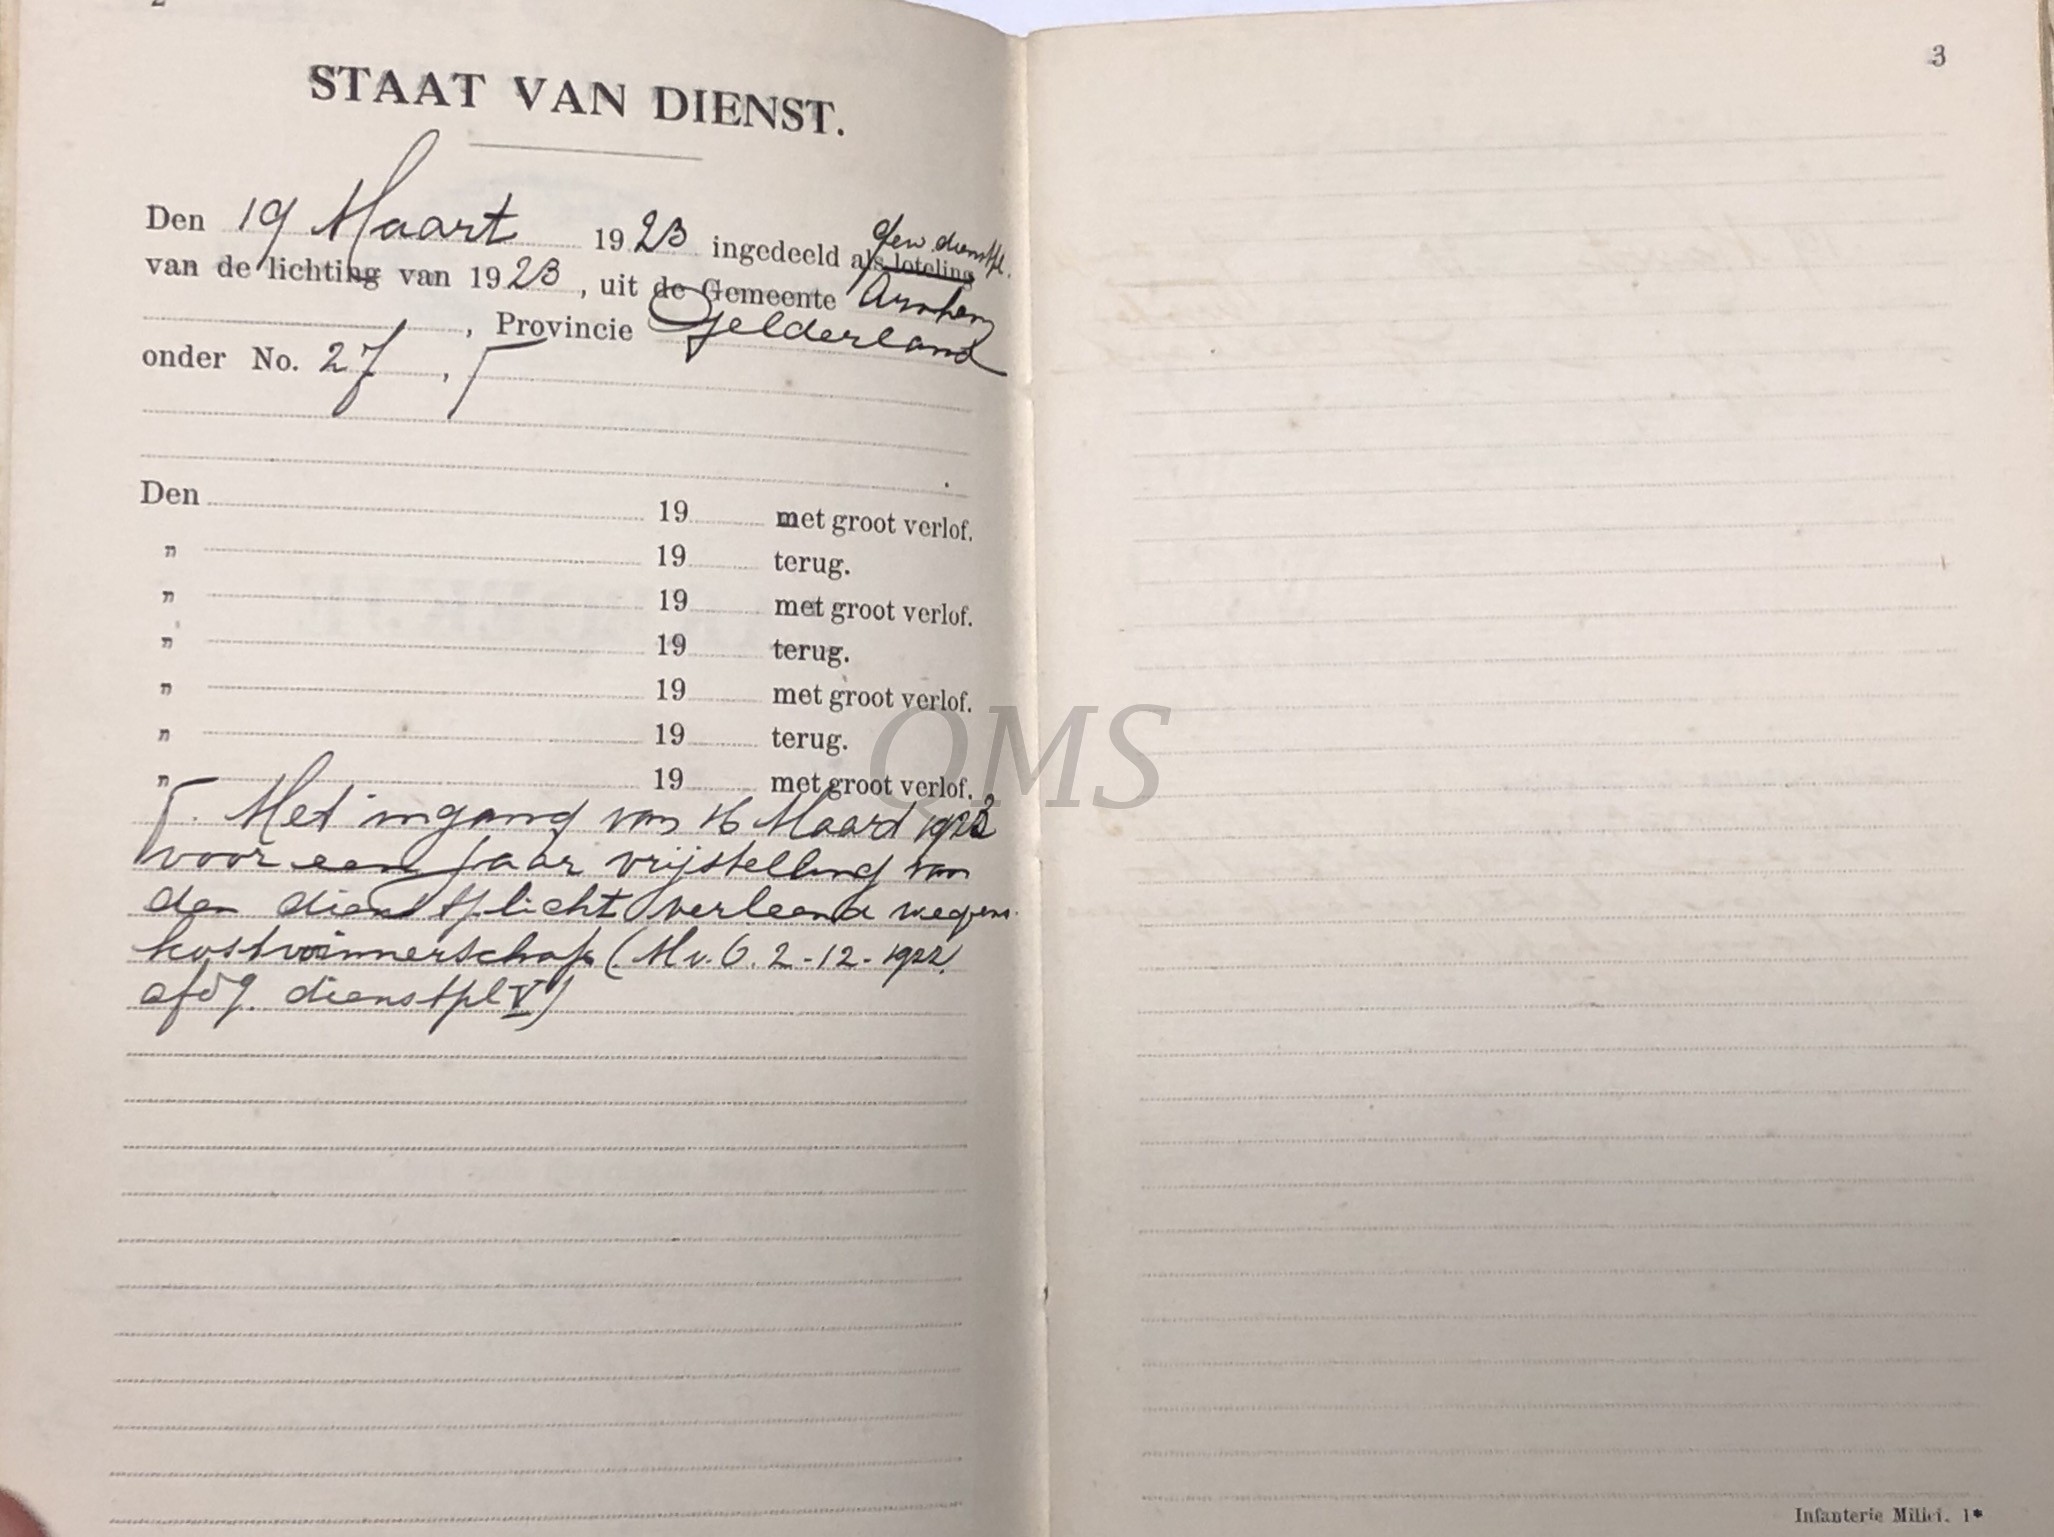 2
STAAT VAN DIENST.
Den 19 Maart 1923 ingedeeld als loteling gew. dienstpl.
van de lichting van 1923, uit de Gemeente Arnhem
, Provincie Gelderland
onder No. 27,
Den 19 met groot verlof.
" 19 terug.
" 19 met groot verlof.
" 19 terug.
" 19 met groot verlof.
" 19 terug.
" 19 met groot verlof.
Met ingang van 16 Maart 1923
voor een jaar vrijstelling van
den dienstplicht verleend wegens
kostwinnerschap (M v. O. 2-12-1922
afdg. dienstpl V)
3
Infanterie Milici. 1*
QMS